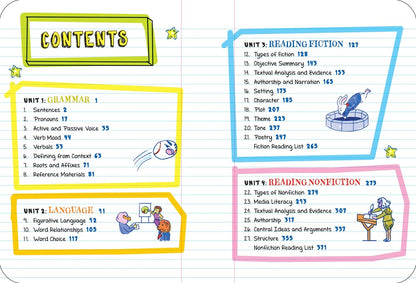 CONTENTS
UNIT 1: GRAMMAR 1
1. Sentences 2
2. Pronouns 17
3. Active and Passive Voice 35
4. Verb Mood 49
5. Verbals 55
6. Defining from Context 63
7. Roots and Affixes 71
8. Reference Materials 81
UNIT 2: LANGUAGE 91
9. Figurative Language 92
10. Word Relationships 105
11. Word Choice 117
UNIT 3: READING FICTION 127
12. Types of Fiction 128
13. Objective Summary 143
14. Textual Analysis and Evidence 153
15. Authorship and Narration 165
16. Setting 173
17. Character 185
18. Plot 207
19. Theme 223
20. Tone 237
21. Poetry 247
Fiction Reading List 265
UNIT 4: READING NONFICTION 273
22. Types of Nonfiction 274
23. Media Literacy 297
24. Textual Analysis and Evidence 307
25. Authorship 317
26. Central Ideas and Arguments 337
27. Structure 355
Nonfiction Reading List 371